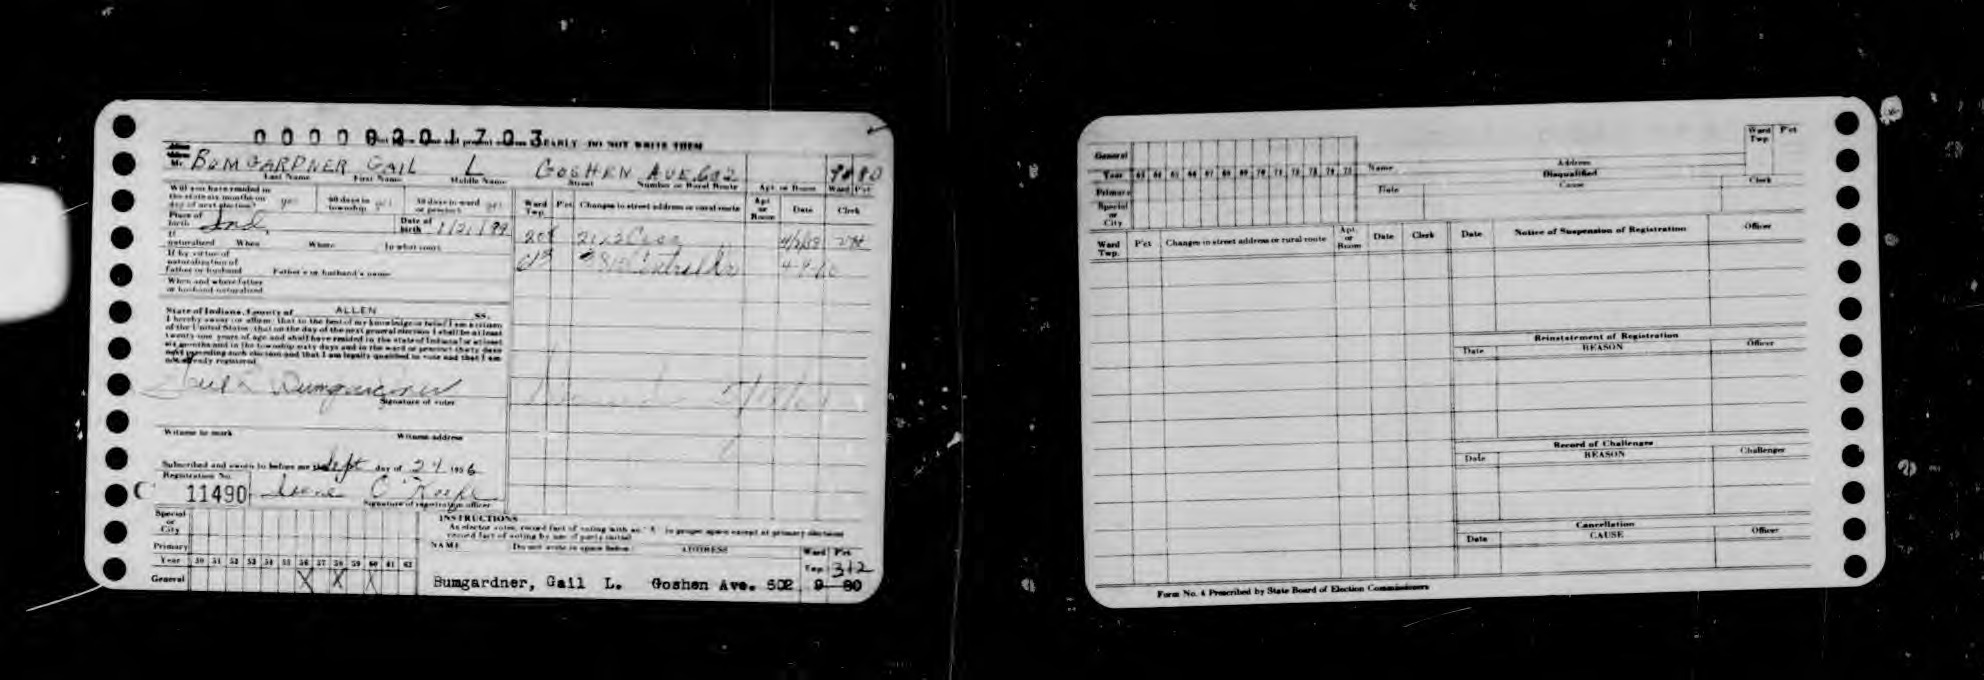 0 0 0 0 0 2 0 1 7 0 3 EARLY DO NOT WRITE THEM
Mr. BUMGARDNER GAIL L GOSHEN AVE. 9 80
Last Name First Name Middle Name Street Number or Rural Route Apt. or Room Ward Pct
Will you have resided in the state six months on day of next election? yes 60 days in township yes 30 days in ward or precinct yes
Ward Twp. P'ct Changes to street address or rural route Apt. or Room Date Clerk
Place of birth Ind. Date of birth 1/21/99
If naturalized When Where In what court
If by virtue of naturalization of father or husband Father's or husband's name
Central Dr
When and where father or husband naturalized
State of Indiana, County of ALLEN SS.
I hereby swear (or affirm) that to the best of my knowledge or belief I am a citizen
of the United States, that on the day of the next general election I shall be at least
twenty-one years of age and shall have resided in the state of Indiana for at least
six months and in the township sixty days and in the ward or precinct thirty days
next preceding such election and that I am legally qualified to vote and that I am
not already registered.
Bumgardner
Signature of voter
Witness to mark Witness address
Subscribed and sworn to before me this Sept day of 24 1956
Registration No.
11490 Irene O'Keefe
Signature of registration officer
INSTRUCTIONS
As elector votes, record fact of voting with an "X" in proper space except at primary elections
record fact of voting by use of party initial
Special or City
Primary
Year 50 51 52 53 54 55 56 57 58 59 60 61 62
General X X X
NAME Do not write in space below ADDRESS Ward Twp. Pct
312
Bumgardner, Gail L. Goshen Ave. 502 9 80
General
Year 63 64 65 66 67 68 69 70 71 72 73 74 75
Primary
Special or City
Name Address Ward Twp. P'ct
Disqualified
Date Cause Clerk
Ward Twp. P'ct Changes in street address or rural route Apt. or Room Date Clerk
Date Notice of Suspension of Registration Officer
Reinstatement of Registration
Date REASON Officer
Record of Challenges
Date REASON Challenger
Cancellation
Date CAUSE Officer
Form No. 4 Prescribed by State Board of Election Commissioners